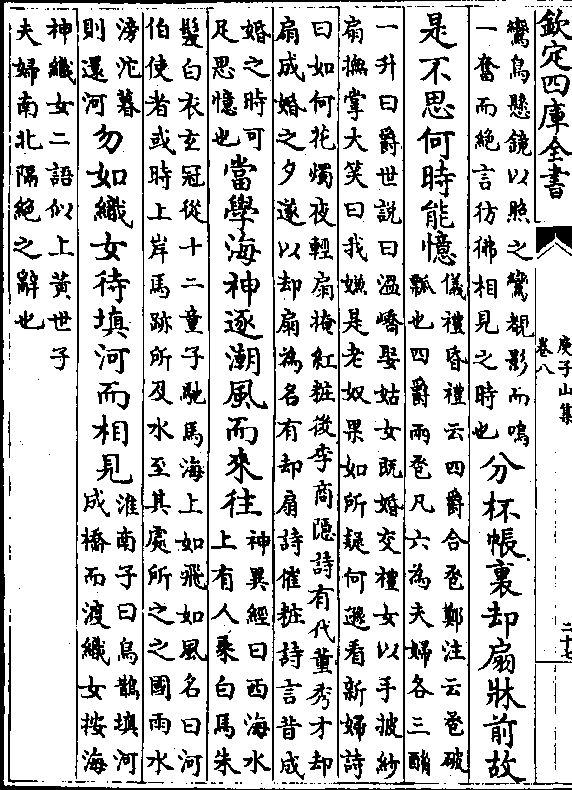 欽定四庫全書
庾子山集
卷八
二十七
鸞鳥懸鏡以照之鸞覩影而鳴
一奮而絶言彷彿相見之時也
分杯帳裏却扇牀前故
是不思何時能憶
儀禮昏禮云四爵合卺鄭注云卺破
瓢也四爵兩卺凡六為夫婦各三酳
一升曰爵世説曰溫嶠娶姑女既婚交禮女以手披紗
扇撫掌大笑曰我嫌是老奴果如所疑何遜看新婦詩
曰如何花燭夜輕扇掩紅粧後李商隠詩有代董秀才却
扇成婚之夕遂以却扇為名有却扇詩催粧詩言昔成
婚之時可
足思憶也
當學海神逐潮風而來往
神異經曰西海水
上有人乗白馬朱
髮白衣玄冠從十二童子馳馬海上如飛如風名曰河
伯使者或時上岸馬跡所及水至其處所之之國雨水
滂沱暮
則還河
勿如織女待填河而相見
淮南子曰烏鵲填河
成橋而渡織女按海
神織女二語似上黄世子
夫婦南北隔絶之辭也